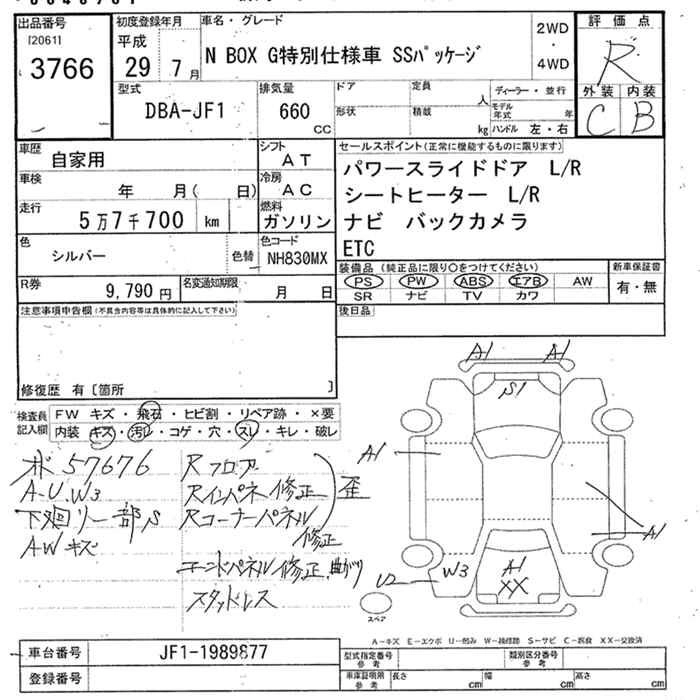 出品番号
[2061]
3766
初度登録年月
平成
29 7月
車名・グレード
N BOX G特別仕様車 SSパッケージ
2WD
・
4WD
評価点
R
外装 内装
C B
型式
DBA-JF1
排気量
660
cc
ドア
形状
定員
人
積載
kg
ディーラー・並行
モデル年式 年
ハンドル 左・右
車歴
自家用
シフト
AT
車検
年 月( 日)
冷房
AC
走行
5万7千700 km
燃料
ガソリン
色
シルバー
色替
色コード
NH830MX
R券
9,790円
名変通知期限
月 日
セールスポイント(正常に機能するものに限ります)
パワースライドドア L/R
シートヒーター L/R
ナビ バックカメラ
ETC
装備品(純正品に限り〇をつけてください)
PS PW ABS エアB AW
SR ナビ TV カワ
新車保証書
有・無
後日品
注意事項申告欄(不具合内容等は具体的に記入して下さい)
修復歴 有〔箇所 〕
検査員
記入欄
FW キズ・飛石・ヒビ割・リペア跡・×要
内装 キズ・汚レ・コゲ・穴・スレ・キレ・破レ
57676
A-U.W3
下廻リ一部S
AWキズ
Rフロア
Rインパネ修正
Rコーナーパネル修正
歪
エンドパネル修正.曲がり
スタッドレス
A1 A1
S1
A1
A1
U2
W3
A1
XX
スペア
A-キズ E-エクボ U-凹み W-補修跡 S-サビ C-腐食 XX-交換済
車台番号
JF1-1989877
登録番号
型式指定番号
参考
類別区分番号
参考
車庫証明用
参考
長さ cm
幅 cm
高さ cm